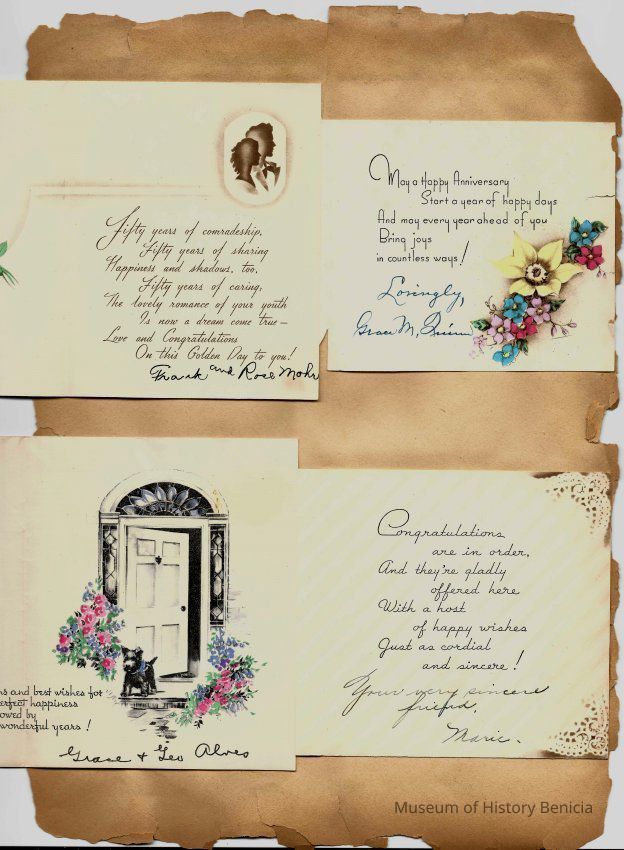 Fifty years of comradeship,
Fifty years of sharing
Happiness and shadows, too,
Fifty years of caring,
The lovely romance of your youth
Is now a dream come true—
Love and Congratulations
On this Golden Day to you!
Frank and Rose Mohr
May a Happy Anniversary
Start a year of happy days
And may every year ahead of you
Bring joys
in countless ways!
Lovingly,
Grace M. Quinn
ns and best wishes for
erfect happiness
owed by
wonderful years!
Grace & Geo Alves
Congratulations
are in order,
And they're gladly
offered here
With a host
of happy wishes
Just as cordial
and sincere!
Your very sincere
friend,
Marie.
Museum of History Benicia